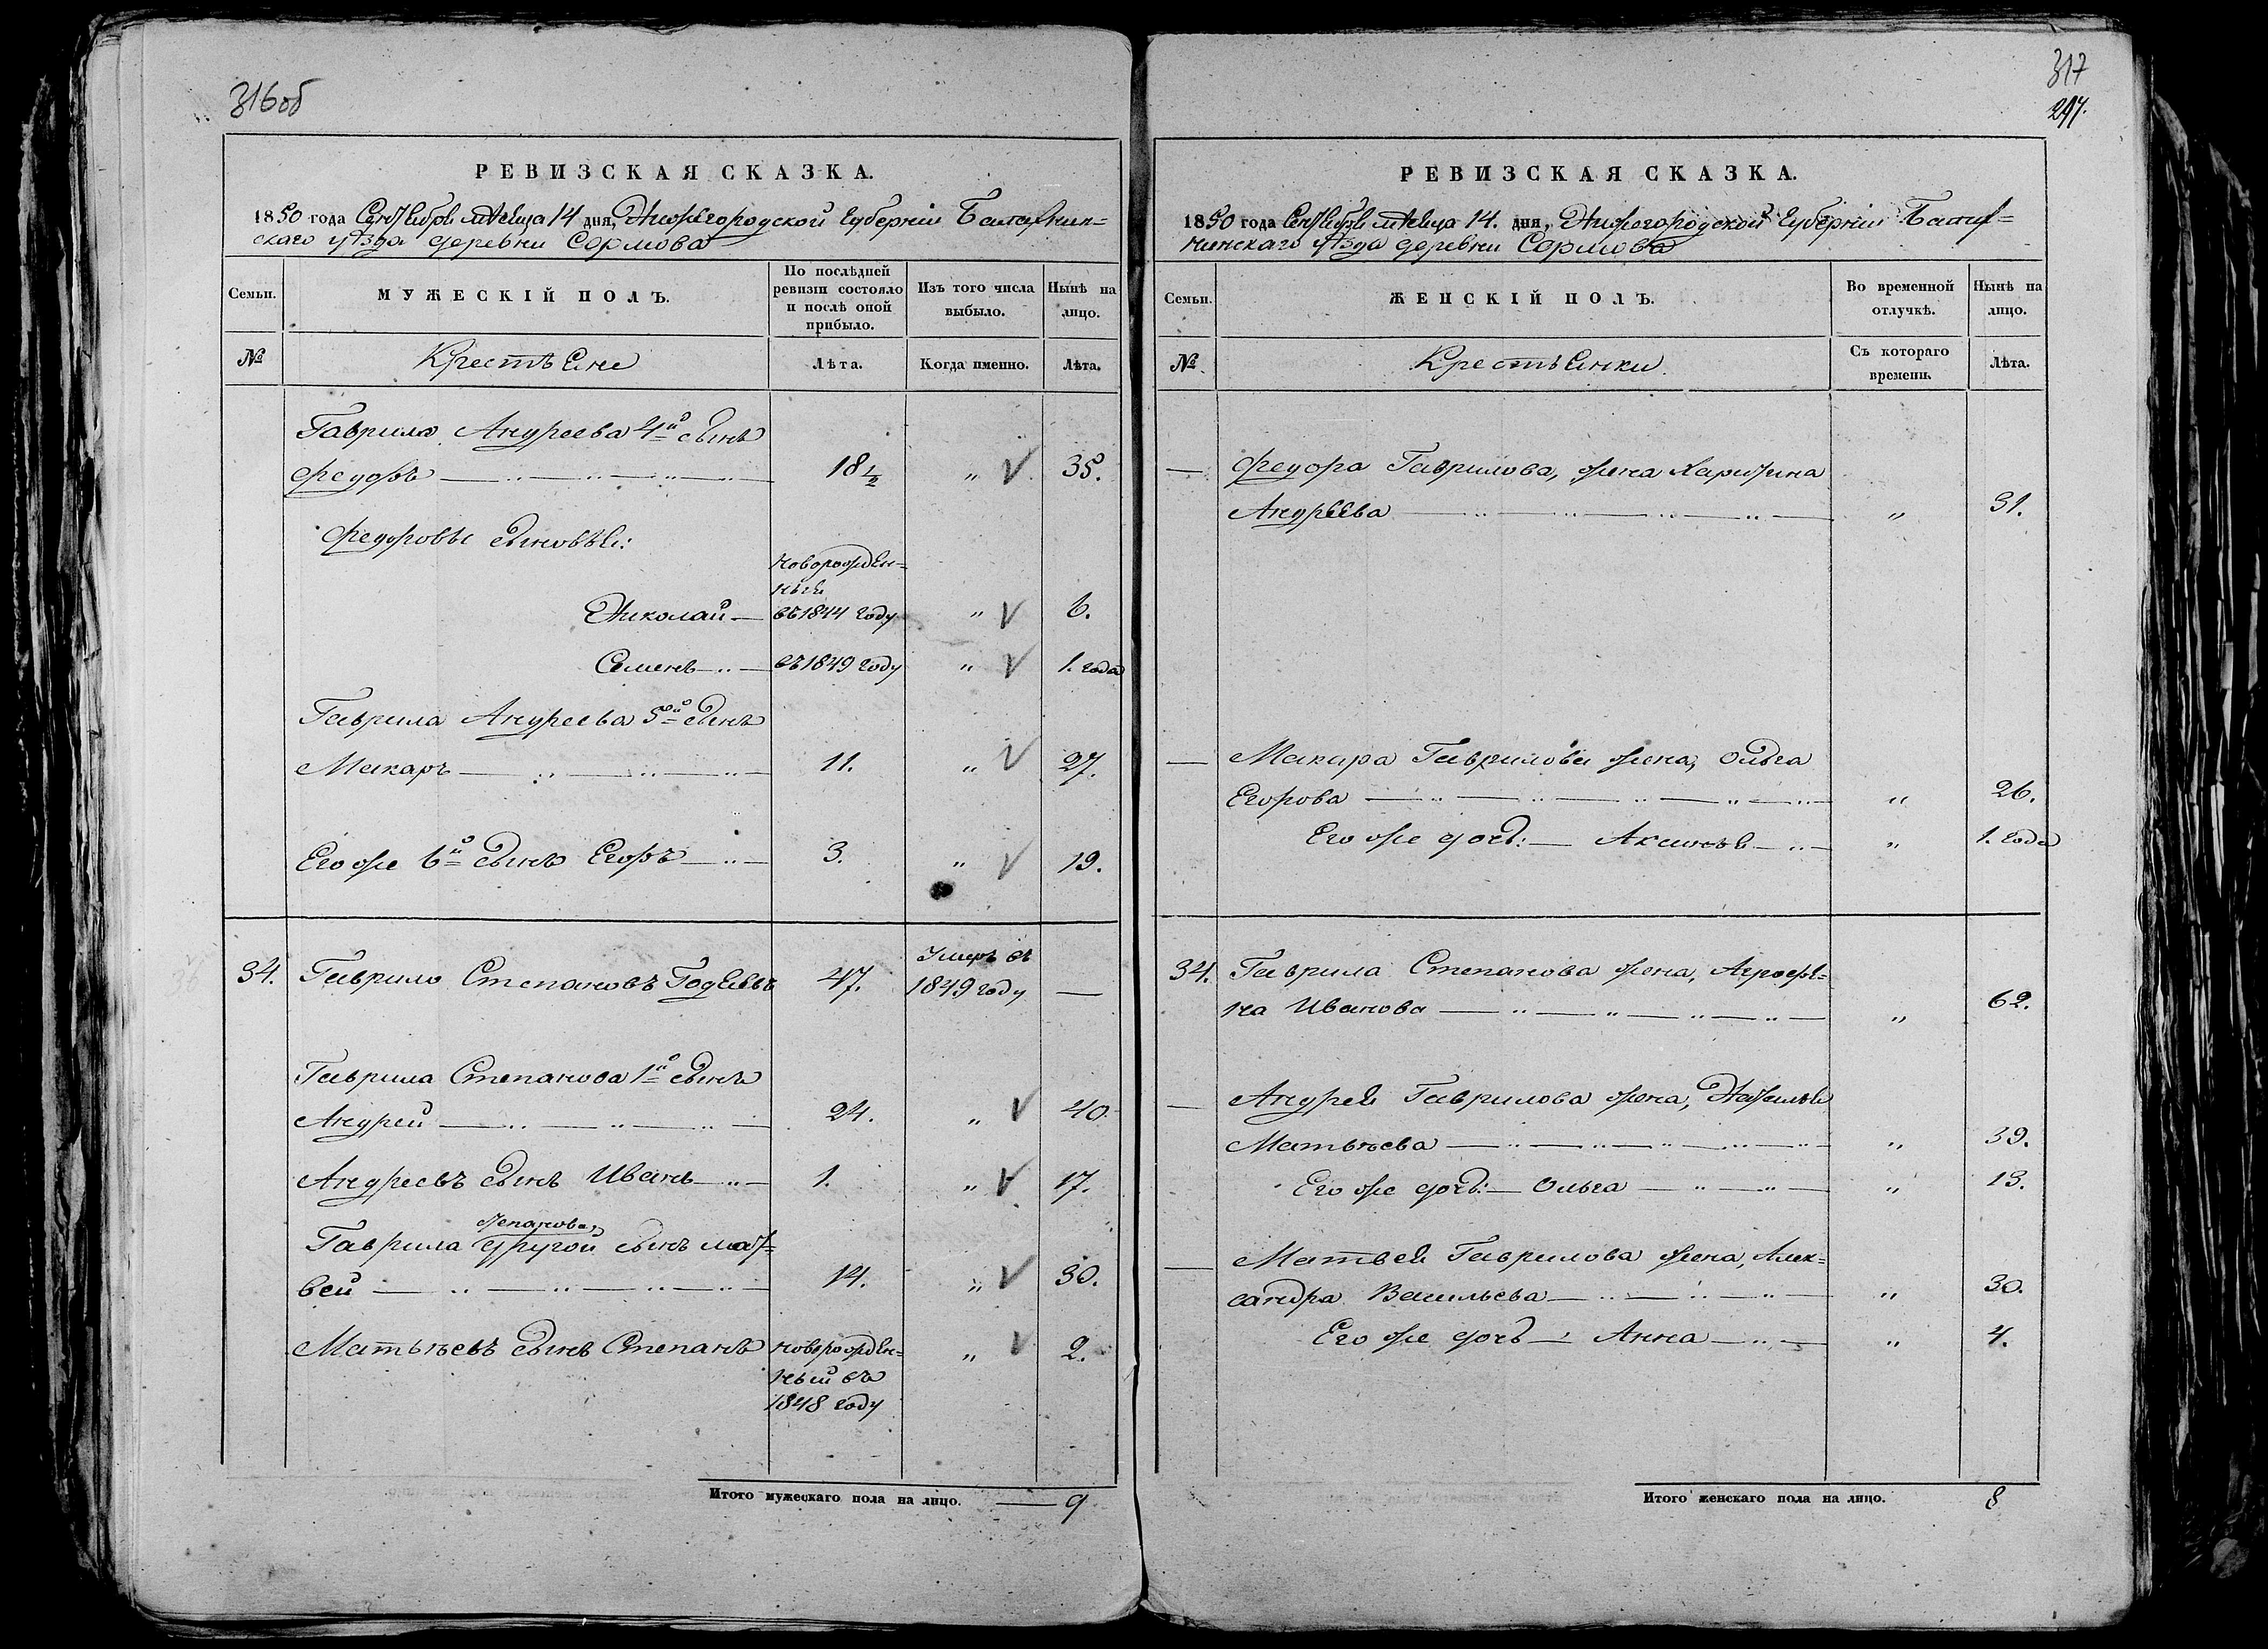 316об
РЕВИЗСКАЯ СКАЗКА.
1850 года Сентября месяца 14 дня, Нижегородской Губернии Балахнин-
скаго уѣзда деревни Сормова
Семьи.
МУЖЕСКІЙ ПОЛЪ.
По послѣдней
ревизіи состояло
и послѣ оной
прибыло.
Изъ того числа
выбыло.
Нынѣ на
лицо.
№
Крестьяне
Лѣта.
Когда именно.
Лѣта.
Гаврила Андреева 4й сынъ
Федоръ 18 1/2 „ V 35.
Федоровы сыновья:
новорожден-
ныя
Николай въ 1844 году „ V 6.
Семенъ въ 1849 году „ V 1. года
Гаврила Андреева 5й сынъ
Макаръ 11. „ V 27.
Его же 6й сынъ Егоръ 3. „ V 19.
34. Гаврило Степановъ Годяевъ 47. Умеръ въ
1849 году —
Гаврила Степанова 1й сынъ
Андрей 24. „ V 40
Андреевъ сынъ Иванъ 1. „ V 17.
Степанова
Гаврила другой сынъ мат-
вей 14. „ V 30.
Матвѣевъ сынъ Степанъ новорожден- „ V 2.
ный въ
1848 году
Итого мужескаго пола на лицо. — 9
317
297.
РЕВИЗСКАЯ СКАЗКА.
1850 года Сентября месяца 14. дня, Нижегородской Губерніи Балах-
нинскаго уѣзда деревни Сормова
Семьи.
ЖЕНСКІЙ ПОЛЪ.
Во временной
отлучкѣ.
Нынѣ на
лицо.
№
Крестьянки
Съ котораго
времени.
Лѣта.
— Федора Гаврилова, жена Харитина
Андреева „ 31.
— Макара Гаврилова жена, Ольга
Егорова „ 26.
Его же дочь: — Аксинья „ 1. года
34. Гаврила Степанова жена, Агрофе-
на Иванова „ 62.
— Андрея Гаврилова жена, Наталья
Матвѣева „ 39.
Его же дочь: — Ольга „ 13.
— Матвея Гаврилова жена, Алек-
сандра Васильева „ 30.
Его же дочь — Анна „ 4.
Итого женскаго пола на лицо. 8